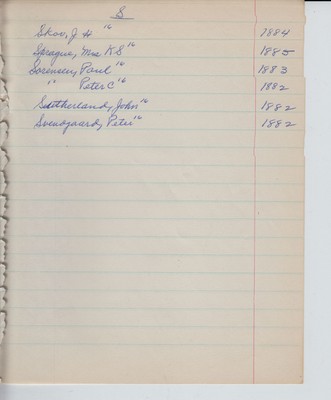 S
Skov, J H 16 1884
Sprague, Mrs K S 16 1885
Sorensen, Paul 16 1883
" Peter C 16 1882
Sutherland, John 16 1882
Svendgaard, Peter 16 1882